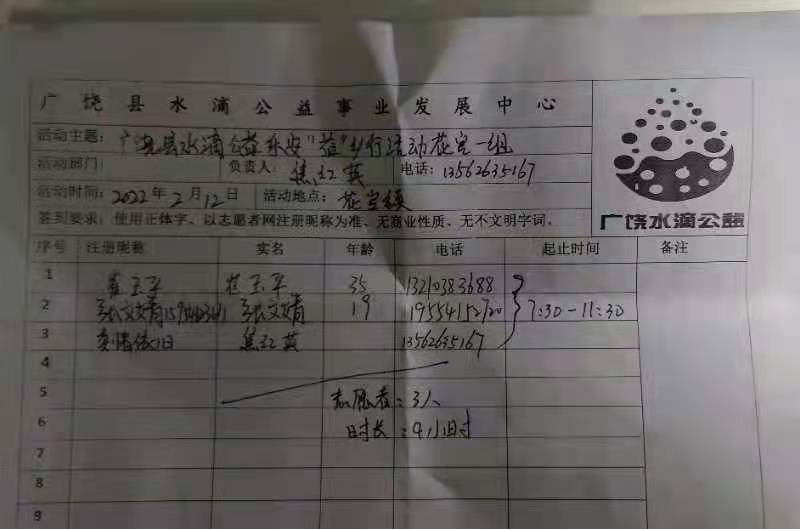 广饶县水滴公益事业发展中心
活动主题: 广饶县水滴公益乐安"益"乡行活动花官一组
活动部门: 负责人: 焦红英 电话: 13562635167
活动时间: 2022年2月12日 活动地点: 花官镇
签到要求: 使用正体字、以志愿者网注册昵称为准、无商业性质、无不文明字词。
广饶水滴公益
序号 注册昵称 实名 年龄 电话 起止时间 备注
1 崔玉平 崔玉平 35 13210383688
2 张文婧 张文婧 19 19554152720 7:30-11:30
3 焦红英 13562635167
4
5 志愿者: 3人
6 时长: 4小时
7
8
9